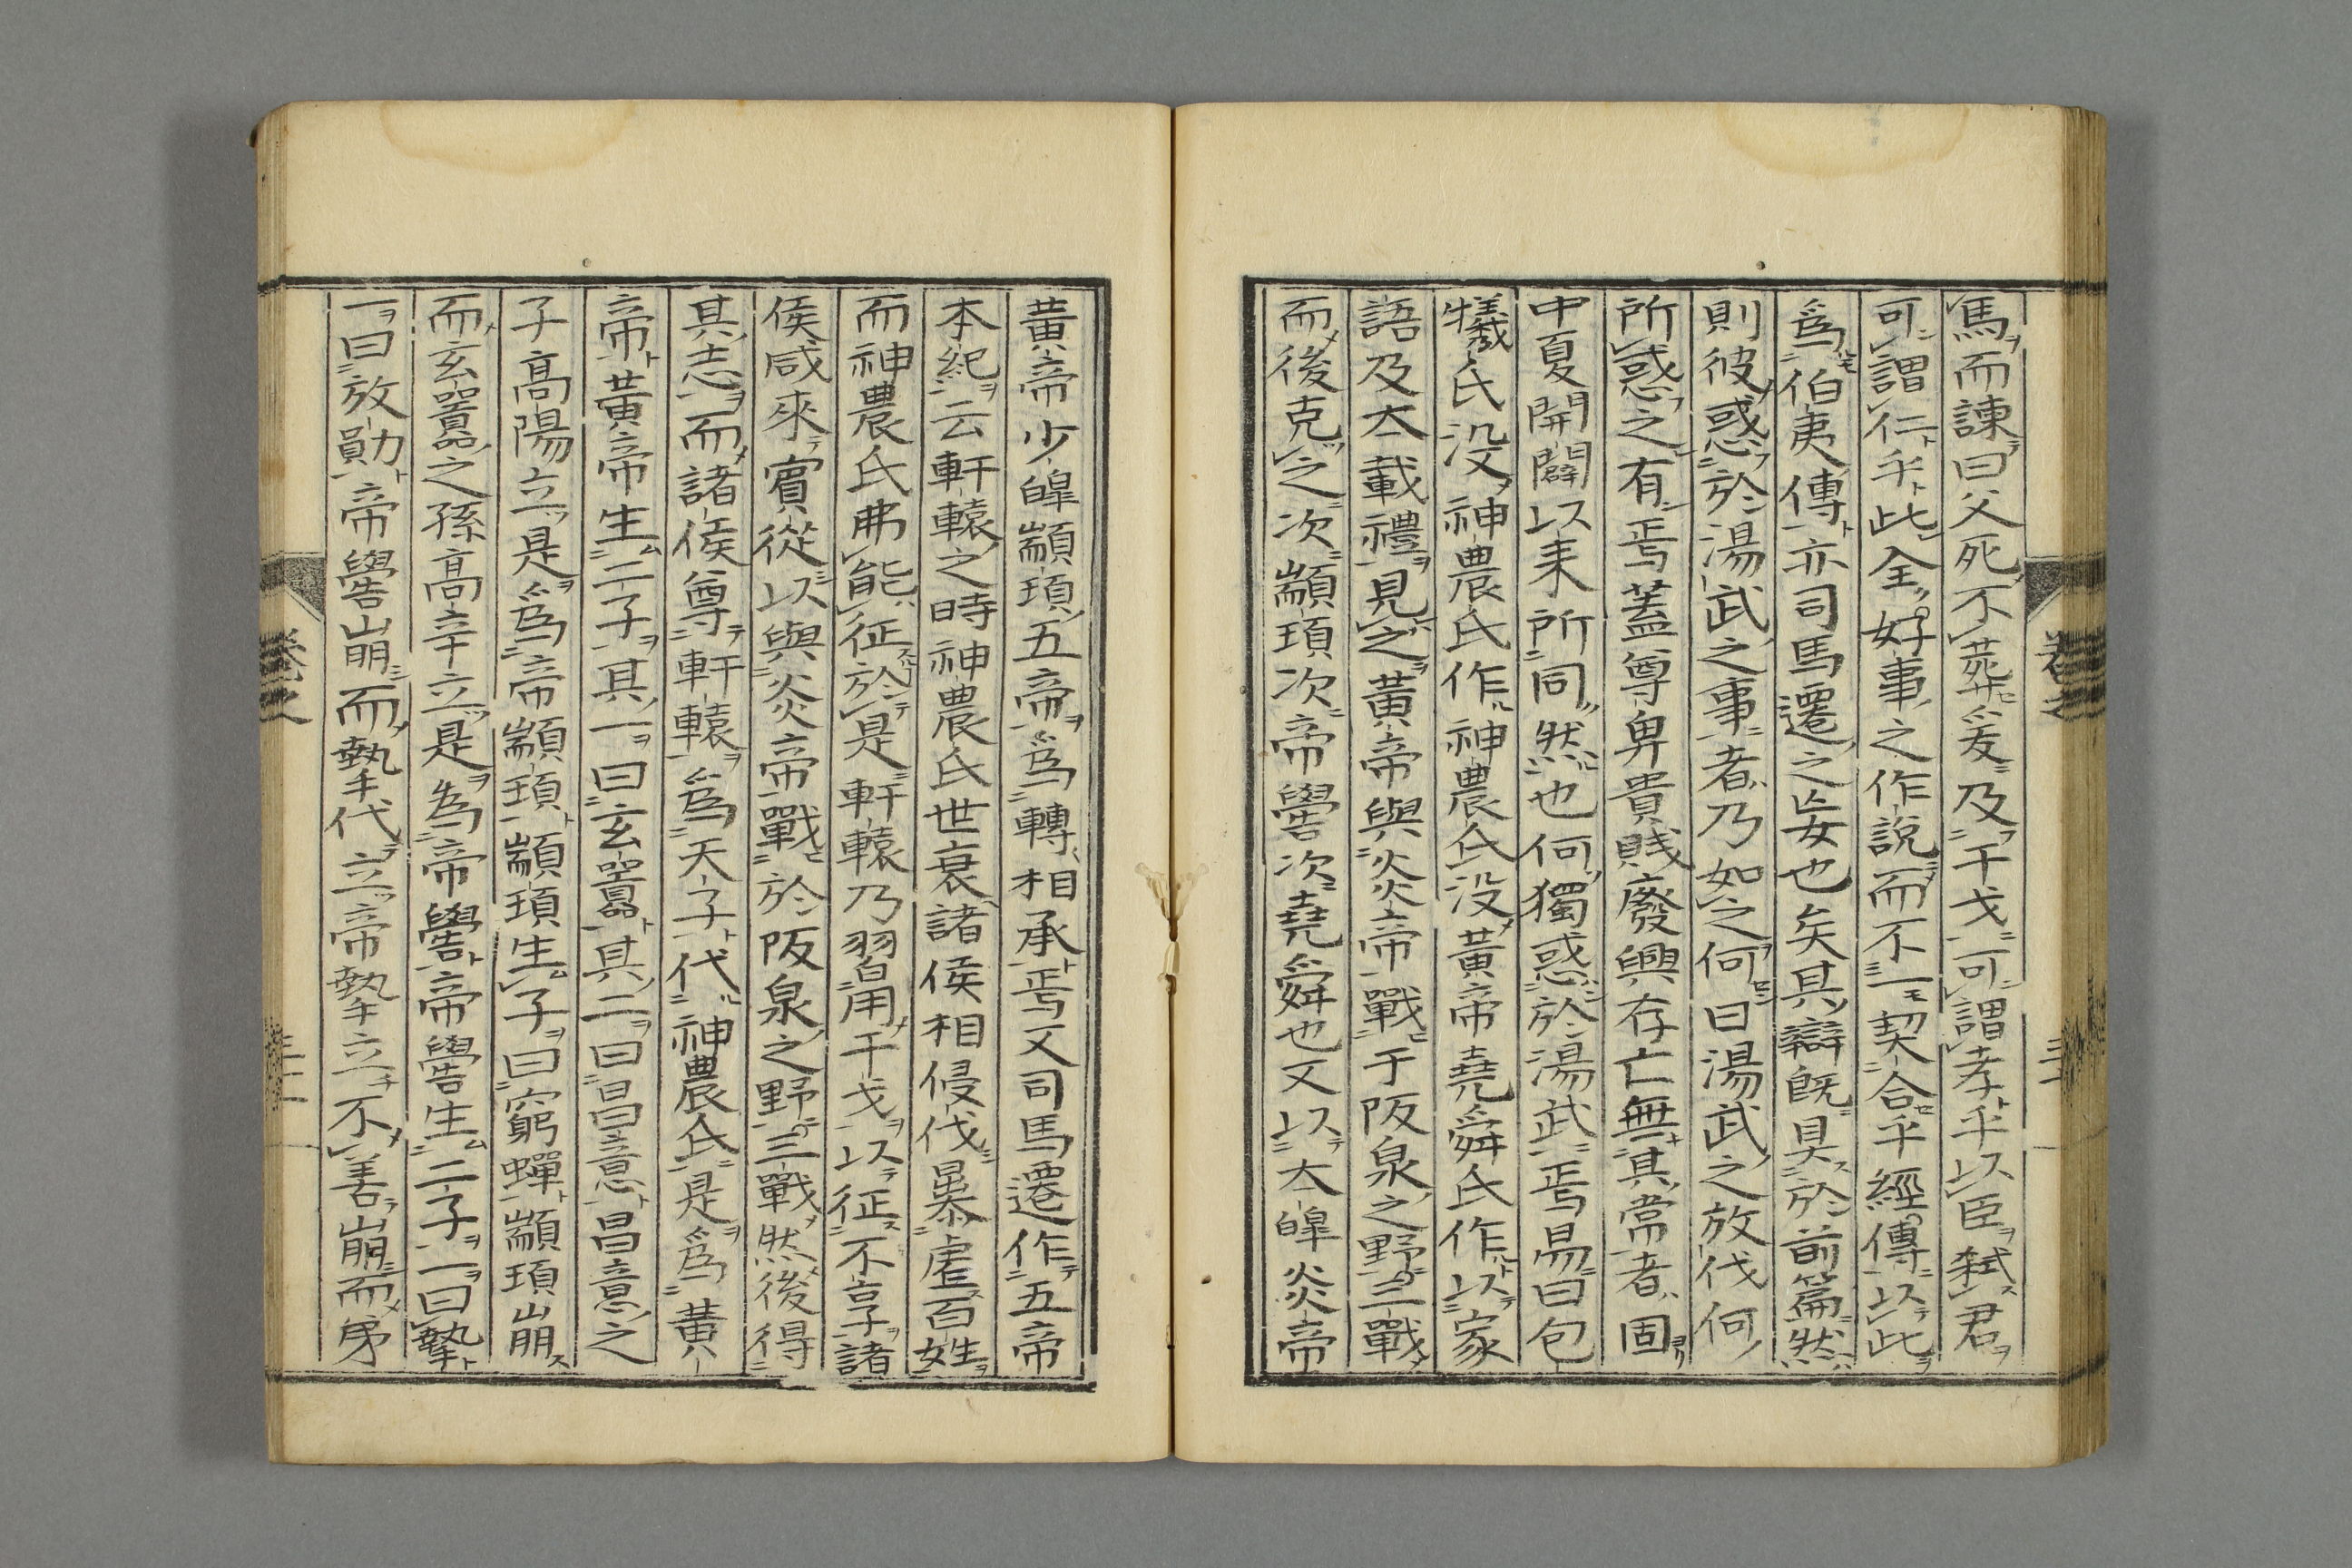 馬而諫曰父死不葬爰及干戈可謂孝乎以臣弑君
可謂仁乎此全好事之作說而不一契合乎經傳以此
爲伯夷傳亦司馬遷之妄也矣其辯既具於前篇然
則彼惑於湯武之事者乃如之何曰湯武之放伐何
所惑之有焉蓋尊卑貴賤廢興存亡無其常者固
中夏開闢以来所同然也何獨惑於湯武焉易曰包
犧氏没神農氏作神農氏没黃帝堯舜氏作以家
語及大戴禮見之黃帝與炎帝戰于阪泉之野三戰
而後克之次顓頊次帝嚳次堯舜也又以大皞炎帝
黃帝少皞顓頊五帝爲轉相承焉又司馬遷作五帝
本紀云軒轅之時神農氏世衰諸侯相侵伐暴虐百姓
而神農氏弗能征於是軒轅乃習用干戈以征不享諸
侯咸來賓從以與炎帝戰於阪泉之野三戰然後得
其志而諸侯尊軒轅爲天子代神農氏是爲黃
帝黃帝生二子其一曰玄囂其二曰昌意昌意之
子高陽立是爲帝顓頊顓頊生子曰窮蟬顓頊崩
而玄囂之孫高辛立是為帝嚳帝嚳生二子一曰摯
一曰放勛帝嚳崩而摯代立帝摯立不善崩而弟
卷之